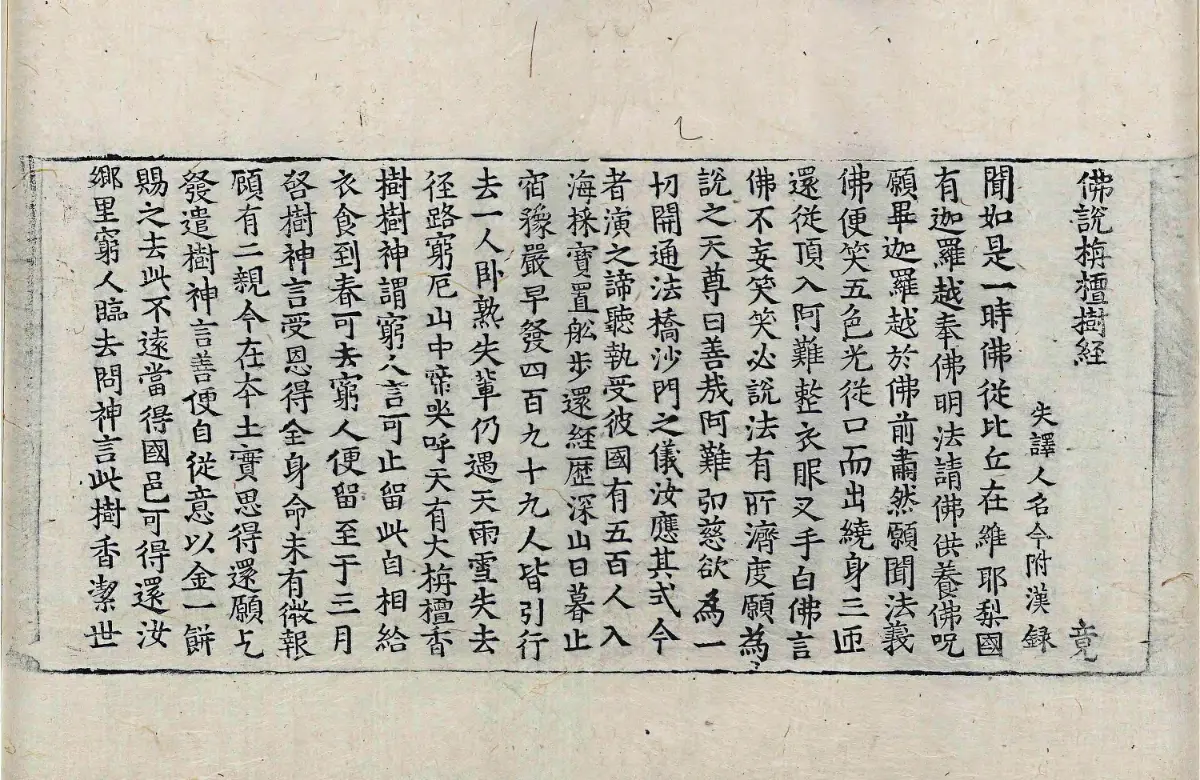 佛說栴檀樹経
失譯人名今附漢録　竟
聞如是一時佛從比丘在維耶梨國
有迦羅越奉佛明法請佛供養佛呪
願畢迦羅越於佛前肅然願聞法義
佛便笑五色光從口而出繞身三匝
還從頂入阿難整衣服叉手白佛言
佛不妄笑笑必說法有所濟度願為
說之天尊曰善哉阿難卯慈欲為一
切開通法橋沙門之儀汝應其式今
者演之諦聽執受彼國有五百人入
海採寳置舩步還經歷深山日暮止
宿豫嚴早發四百九十九人皆引行
去一人卧熟失軰仍遇天雨雪失去
径路窮厄山中啼哭呼天有大栴檀香
樹樹神謂窮人言可止留此自相給
衣食到春可去窮人便留至于三月
啓樹神言受恩得全身命未有微報
顧有二親今在夲土實思得還願乞
發遣樹神言善便自從意以金一餅
賜之去此不遠當得國邑可得還汝
鄉里窮人臨去問神言此樹香潔世